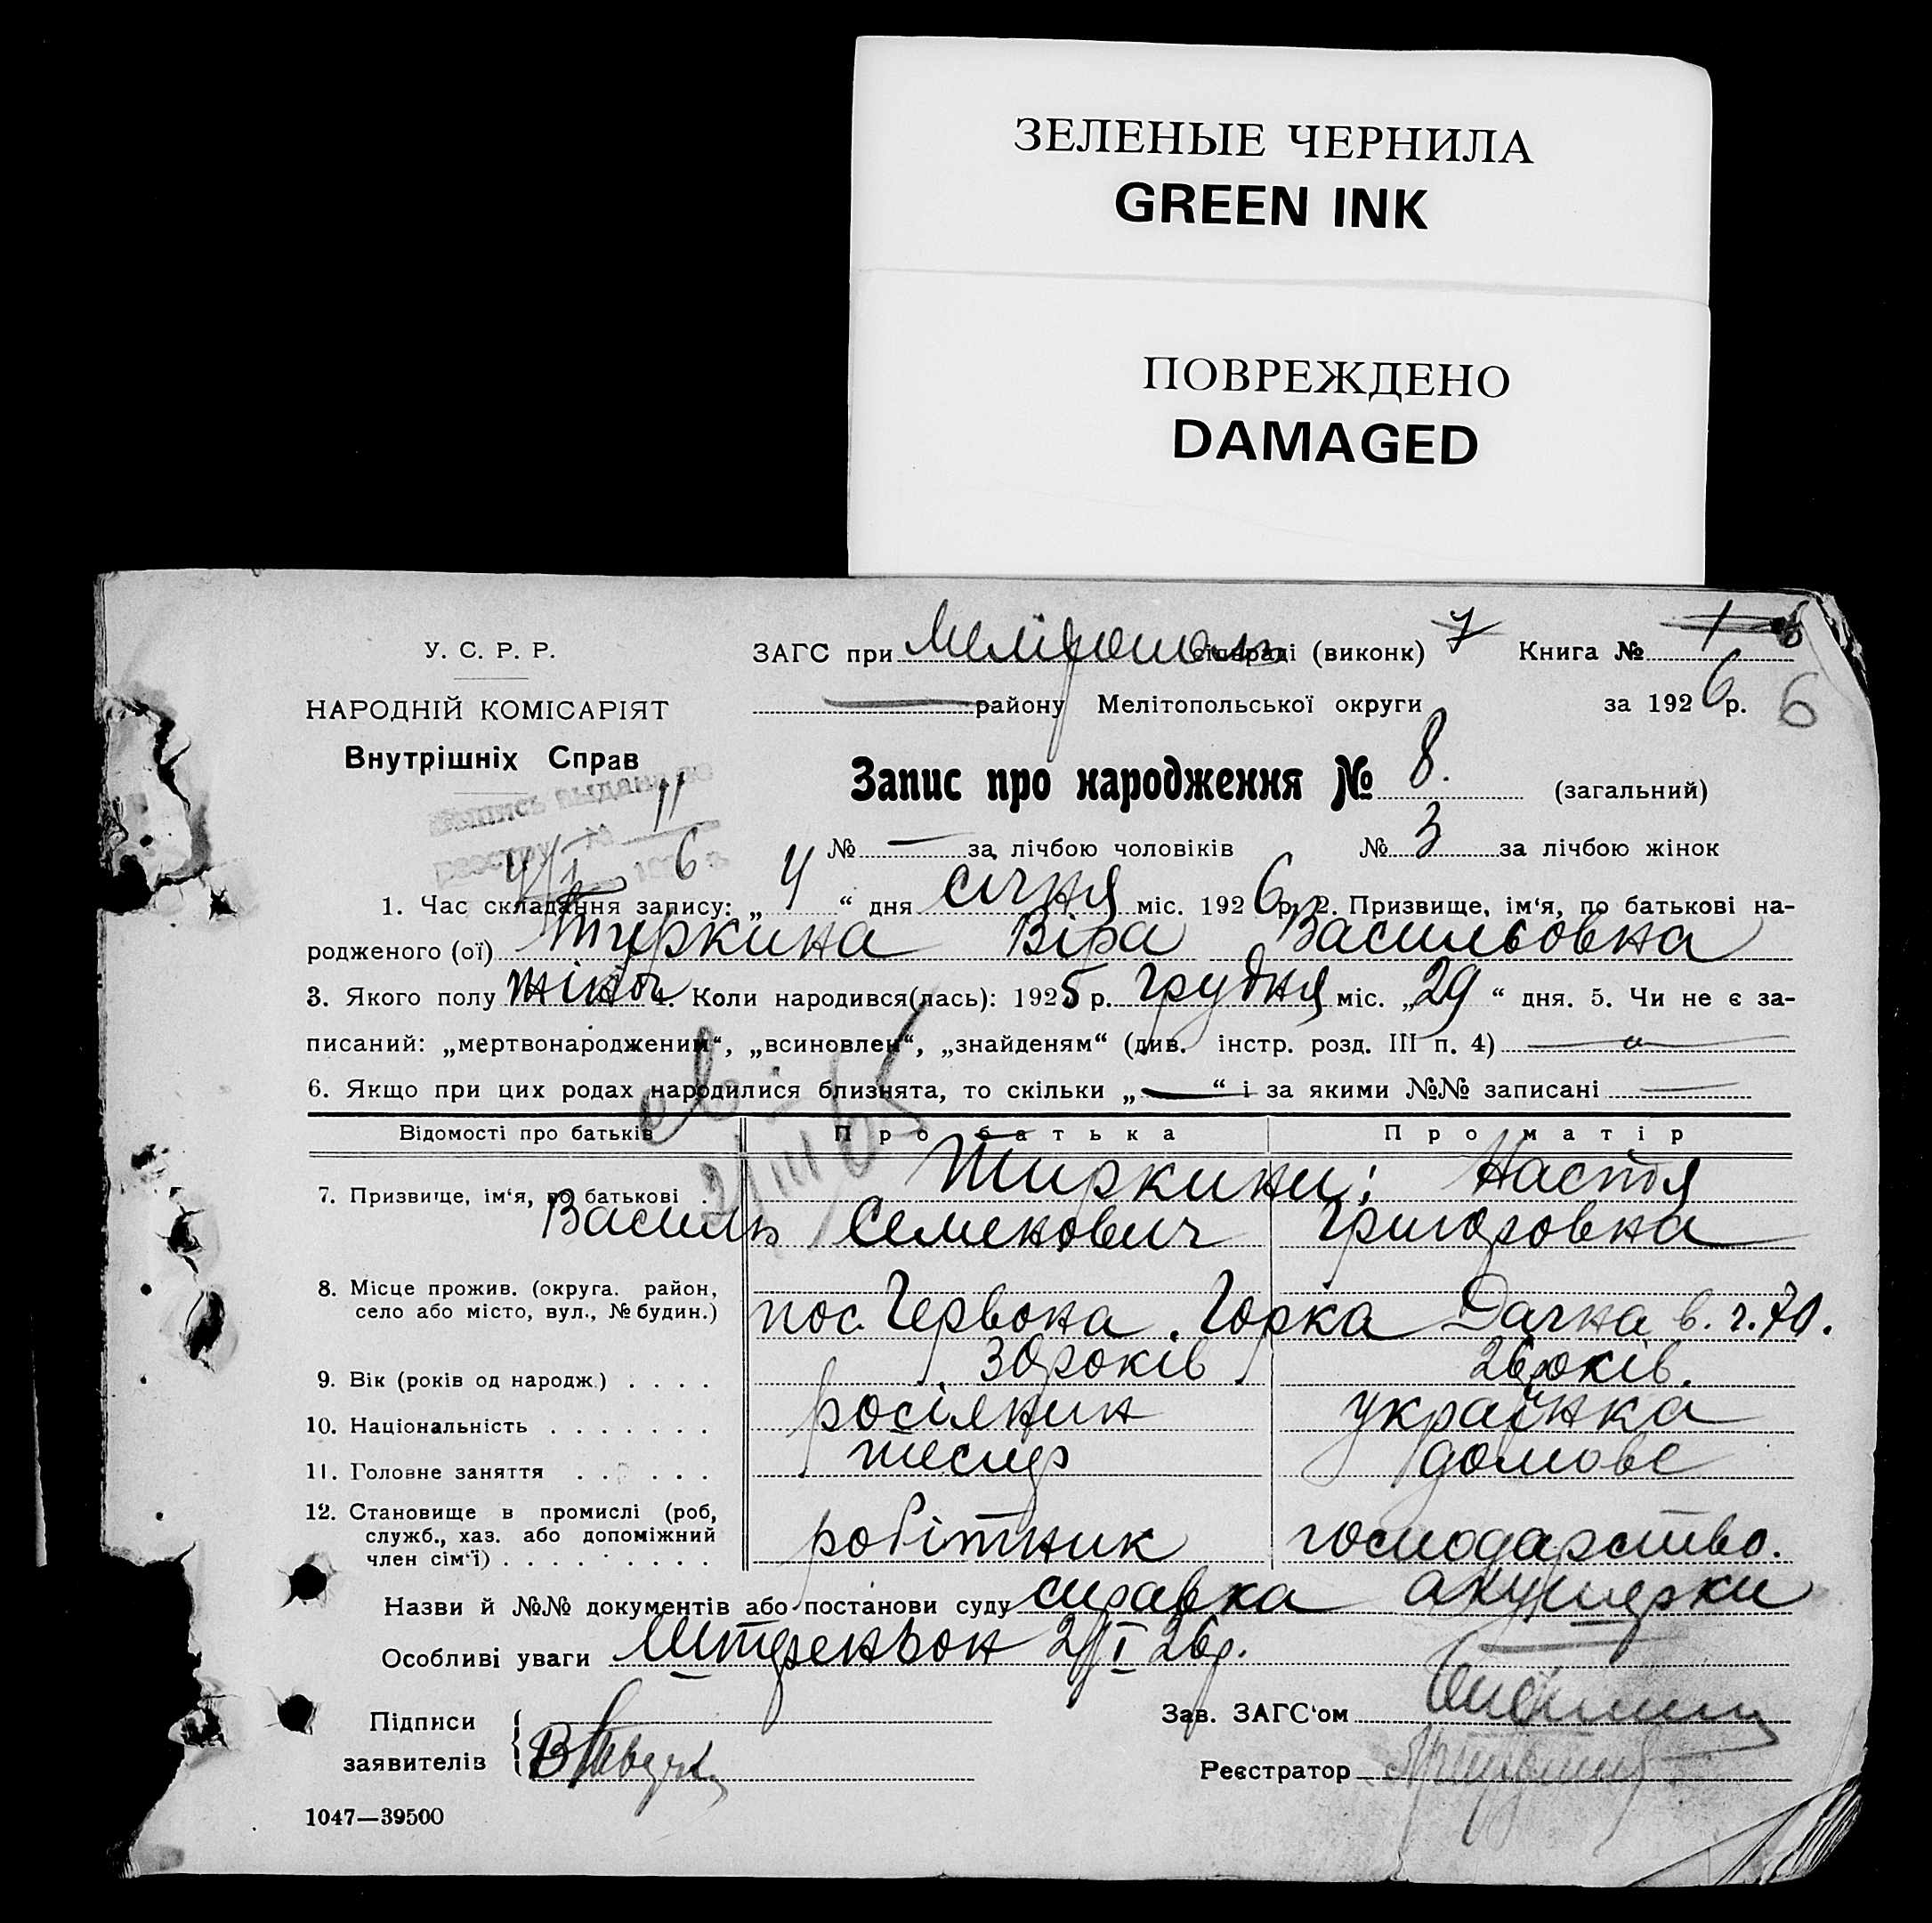 ЗЕЛЕНЫЕ ЧЕРНИЛА
GREEN INK
ПОВРЕЖДЕНО
DAMAGED
У. С. Р. Р.
НАРОДНІЙ КОМІСАРІЯТ
Внутрішніх Справ
ЗАГС при сільраді (виконк) 7 Книга № 1
району Мелітопольської округи за 1926 р. 6
Запис про народження № 8. (загальний)
№ — за лічбою чоловіків № 3 за лічбою жінок
выпись выдана по
реестру № 11
4/I 1926 г.
1. Час складання запису: „4“ дня січня міс. 1926 р. 2. Призвище, ім‘я, по батькові на-
родженого (ої) Тиркина Віра Васильовна
3. Якого полу жіноч. 4. Коли народився(лась): 1925 р. грудня міс. „29“ дня. 5. Чи не є за-
писаний: „мертвонароджений“, „всиновлен“, „знайденям“ (див. інстр. розд. III п. 4) —„—
6. Якщо при цих родах народилися близнята, то скільки „—“ і за якими №№ записані —
Відомості про батьків Про батька Про матір
7. Призвище, ім‘я, по батькові . Тиркини: Настя
Василь Семенович Григоровна
8. Місце прожив. (округа. район,
село або місто, вул., № будин.) пос. Червона Горка Дачна в. ч. 70.
9. Вік (років од народж.) . . . . 30 років 26 років.
10. Національність . . . . . . . росіянин українка
11. Головне заняття . . . . . . тесляр домове
12. Становище в промислі (роб,
служб., хаз. або допоміжний
член сім‘ї) . . . . . . . . . робітник господарство.
Назви й №№ документів або постанови суду справка акушерки
Особливі уваги Штреньвон 2/I 26 р.
Підписи
заявителів
Зав. ЗАГС‘ом
Реєстратор
1047—39500